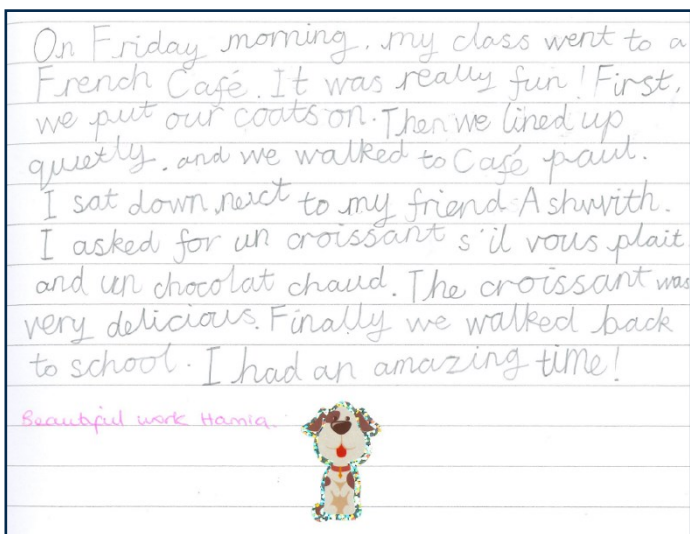 On Friday morning, my class went to a
French Café. It was really fun! First,
we put our coats on. Then we lined up
quietly, and we walked to Café paul.
I sat down next to my friend Ashwith.
I asked for un croissant s'il vous plait
and un chocolat chaud. The croissant was
very delicious. Finally we walked back
to school. I had an amazing time!
Beautiful work Hamia.